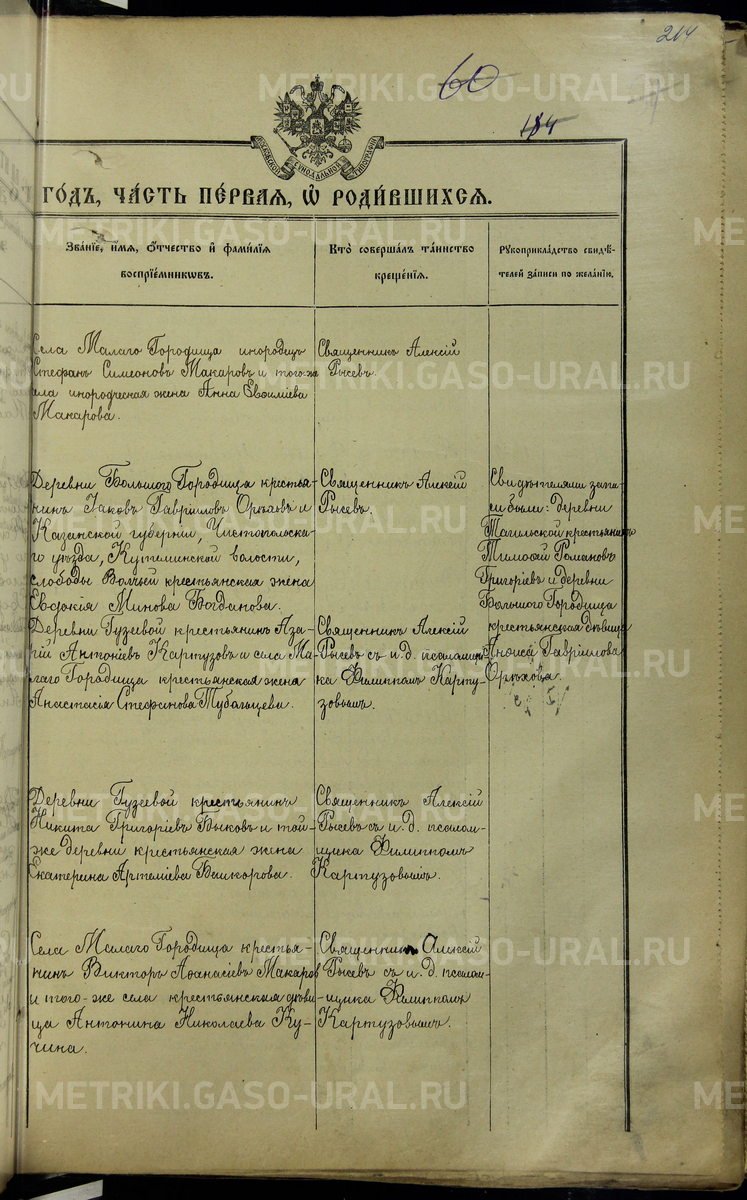 214
60
184
МОСКОВСКОЙ СѴНОДАЛЬНОЙ ТИПОГРАФІИ
ГО́ДЪ, ЧА́СТЬ ПЕ́РВАЯ, Ѡ҆ РОДИ́ВШИХСЯ.
Зва́нїе, и҆́мя, ѻ҆́тчество и҆ фами́лїя
воспрїе́мникѡвъ.
Кто̀ соверша́лъ та́инство
креще́нїя.
Рꙋкоприкла́дство свидѣ́-
телей за́писи по жела́нїю.
Села Малаго Городища инородецъ
Стефанъ Симеоновъ Макаровъ и того-же
села инородческая жена Анна Евѳиміева
Макарова.
Священникъ Алексій
Рысевъ.
Деревни Большого Городища крестья-
нинъ Іаковъ Гавріиловъ Орѣховъ и
Казанской губерніи, Чистопольска-
го уѣзда, Кутеминской волости,
слободы Волчьей крестьянская жена
Евдокія Минова Богданова.
Священникъ Алексій
Рысевъ.
Свидѣтелями запи-
си были: деревни
Тагильской крестьянинъ
Тимоѳей Романовъ
Григоріевъ и деревни
Большого Городища
крестьянская дѣвица
Анисія Гавріилова
Орѣхова.
Деревни Гузеевой крестьянинъ Аза-
рій Антоніевъ Картузовъ и села Ма-
лаго Городища крестьянская жена
Анастасія Стефанова Тубальцева.
Священникъ Алексій
Рысевъ съ и. д. псаломщи-
ка Филиппомъ Карту-
зовымъ.
Деревни Гузеевой крестьянинъ
Никита Григоріевъ Быковъ и той-
же деревни крестьянская жена
Екатерина Артеміева Башкорова.
Священникъ Алексій
Рысевъ съ и. д. псалом-
щика Филиппомъ
Картузовымъ.
Села Малаго Городища крестья-
нинъ Викторъ Аѳанасіевъ Макаровъ
и того-же села крестьянская дѣви-
ца Антонина Николаева Ку-
чина.
Священникъ Алексій
Рысевъ съ и. д. псалом-
щика Филиппомъ
Картузовымъ.
METRIKI.GASO-URAL.RU
METRIKI.GASO-URAL.RU
METRIKI.GASO-URAL.RU
METRIKI.GASO-URAL.RU
METRIKI.GASO-URAL.RU
METRIKI.GASO-URAL.RU
METRIKI.GASO-URAL.RU
METRIKI.GASO-URAL.RU